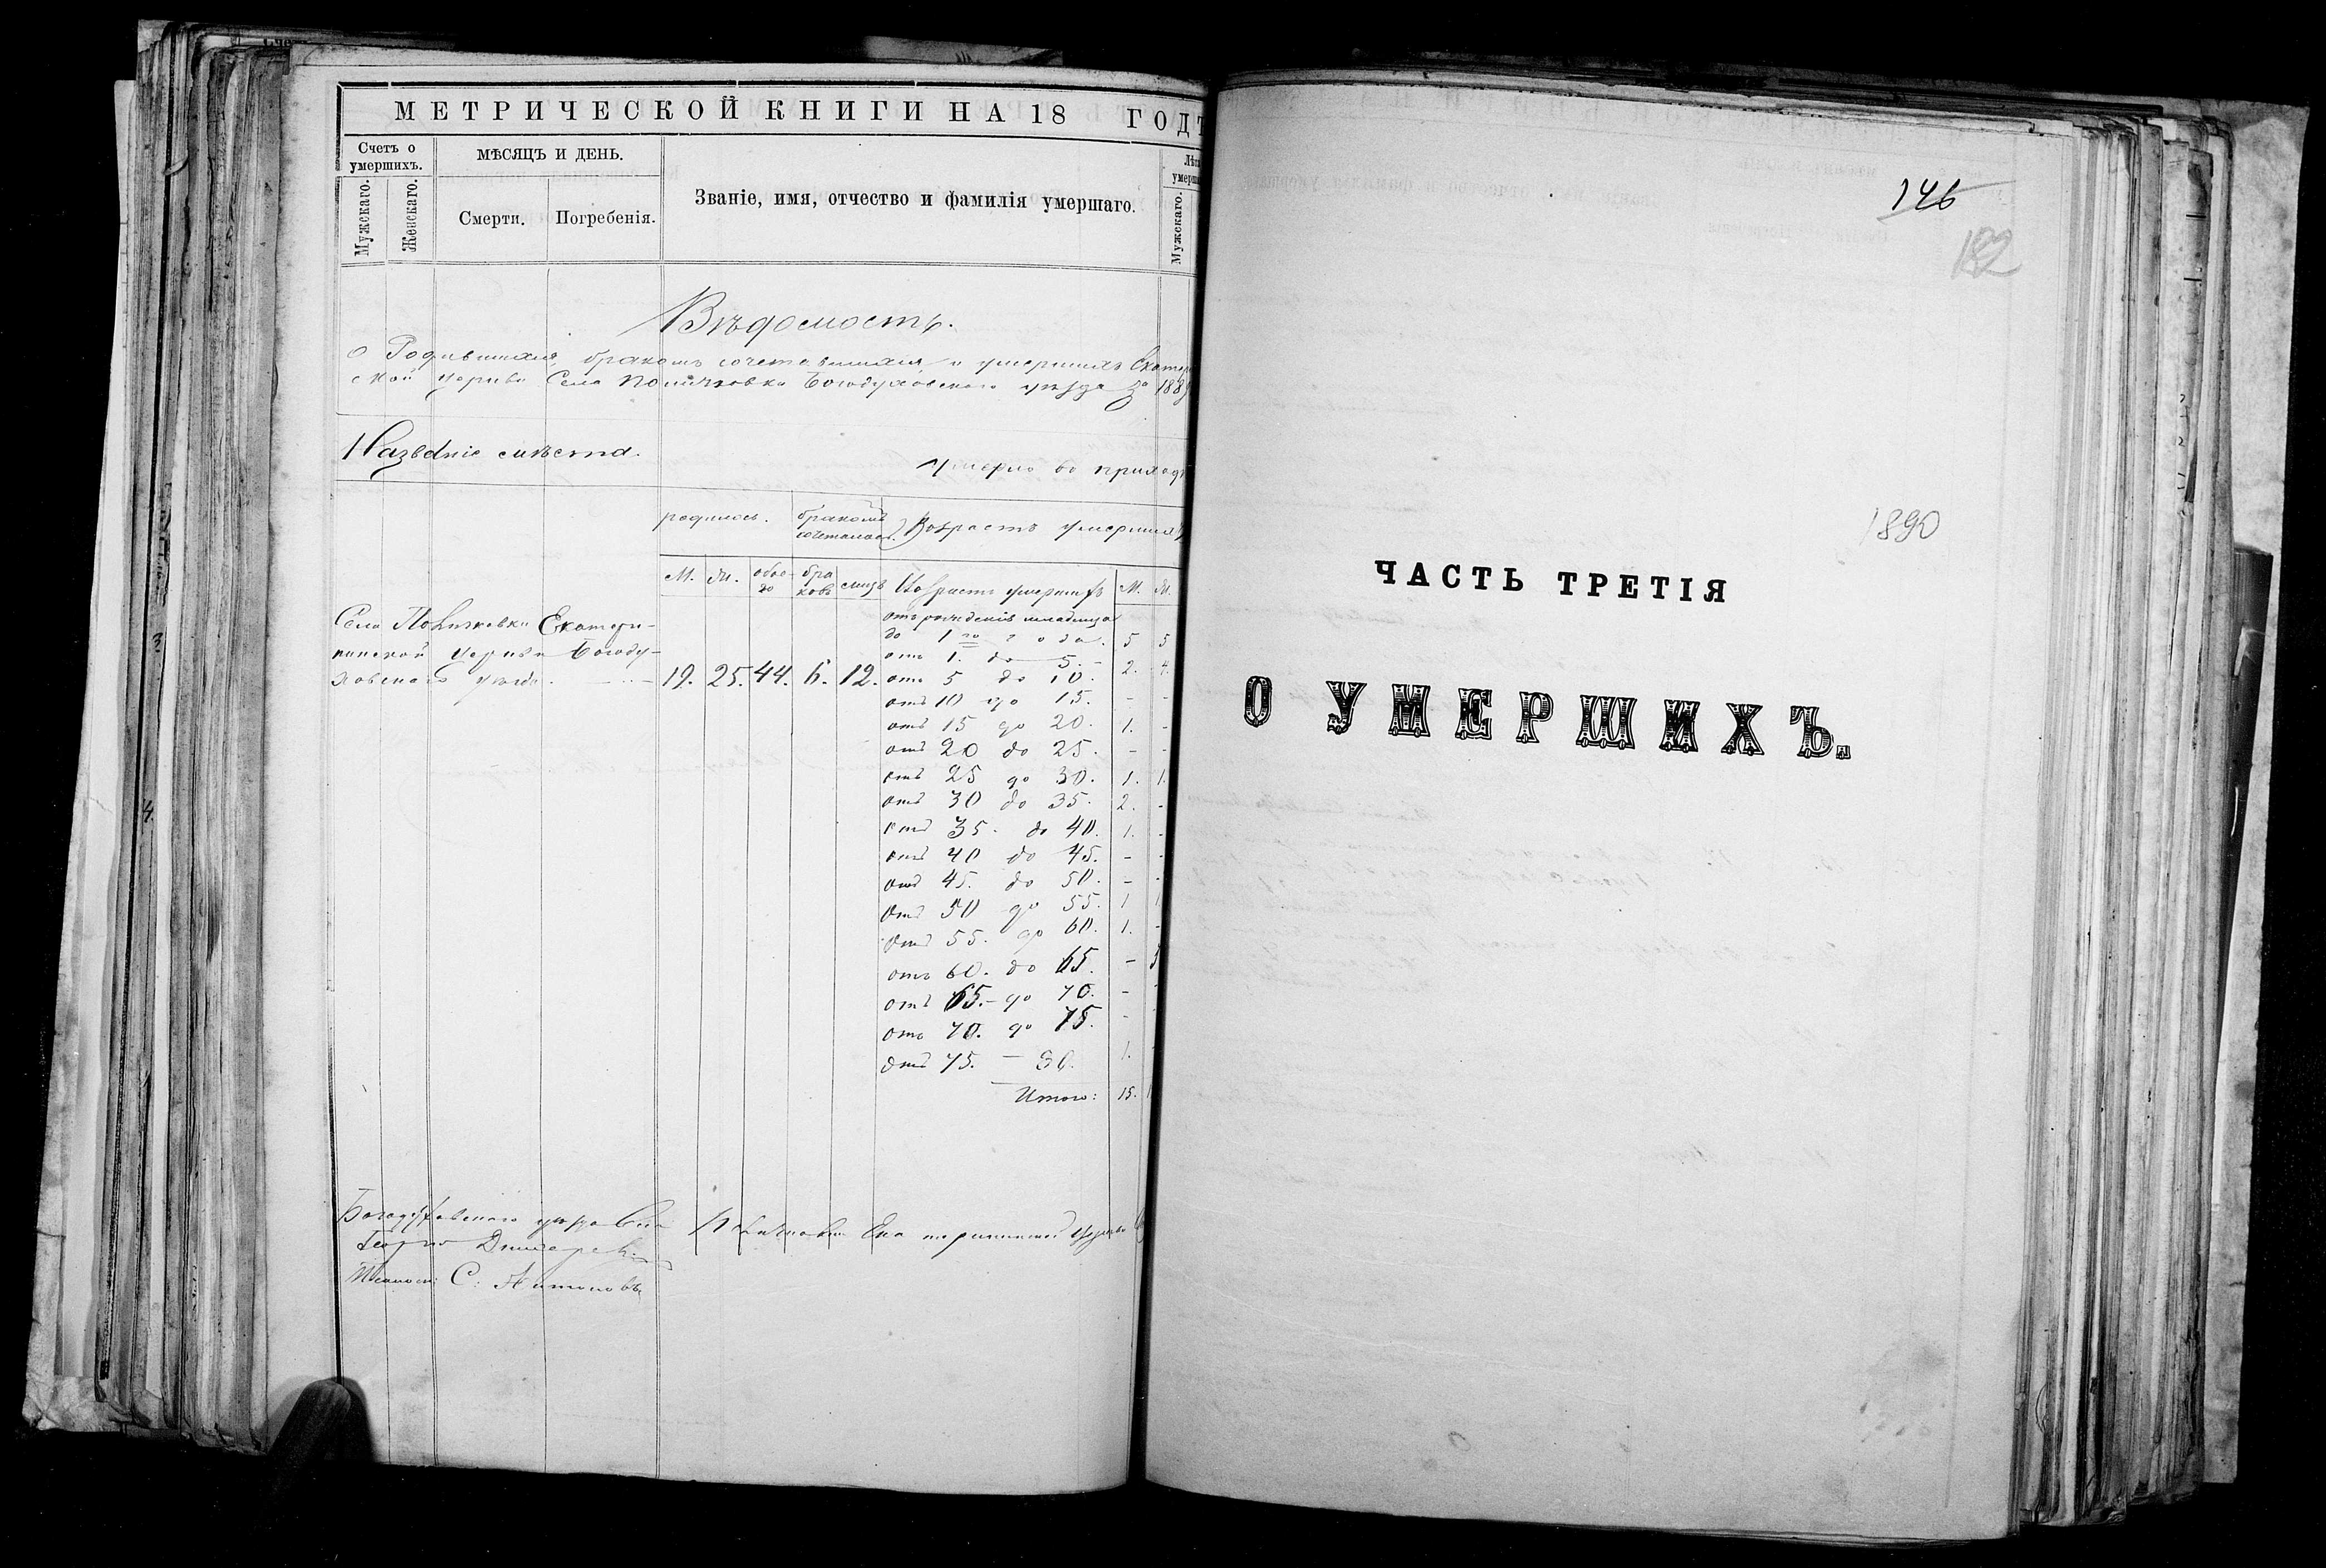 МЕТРИЧЕСКОЙ КНИГИ НА 18 ГОДЪ
Счетъ о умершихъ.
Мужскаго.
Женскаго.
МѢСЯЦЪ И ДЕНЬ.
Смерти.
Погребенія.
Званіе, имя, отчество и фамилія умершаго.
Мужскаго.
Вѣдомость.
о Родившихся, бракомъ сочетавшихся, и умершихъ Екатер
ской церкви Села Богодуховскаго уѣзда за 188
Названіе мѣста.
Умерло во приходѣ
родилось.
бракомъ сочеталось.
Возрастъ умершихъ
М. Ж. обое- го бра ковъ лицъ Возрастъ умершихъ М. Ж.
отъ рожденія младенца
до 1 го года. 5 5
отъ 1. до 5. - 2. 4.
Село Екатери-
нинской Церкви Богоду-
ховскаго уѣзда. 19. 25. 44. 6. 12.
отъ 5 до 10.
отъ 10 до 15. - -
отъ 15 до 20. 1. -
отъ 20 до 25. - -
отъ 25 до 30. 1. 1.
отъ 30 до 35. 2. -
отъ 35. до 40. 1. -
отъ 40 до 45. - -
отъ 45. до 50. - -
отъ 50 до 55. 1 1
отъ 55. до 60. 1. -
отъ 60. до 65. -
отъ 65. - до 70. -
отъ 70. до 75. -
отъ 75. — 80. 1.
Итого: 15.
Богодуховскаго уѣзда Села Екатерининской церкви
С.
146
182
1890
ЧАСТЬ ТРЕТІЯ
О УМЕРШИХЪ.